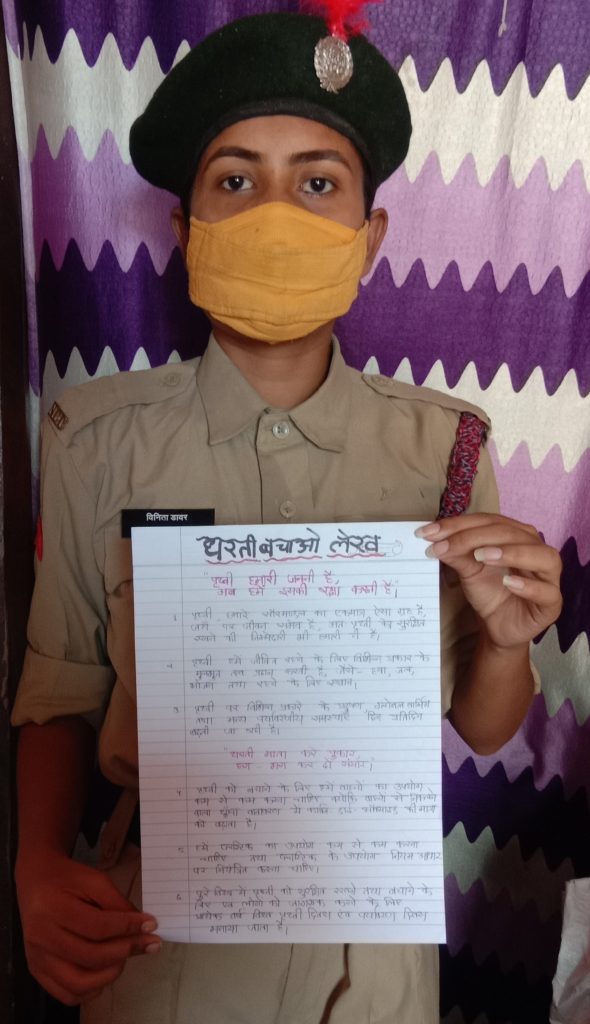 विनिता डावर
धरती बचाओ लेख
"पृथ्वी हमारी जननी है,
अब हमें इसकी रक्षा करनी है।"
1. पृथ्वी हमारे सौरमण्डल का एकमात्र ऐसा ग्रह है,
जहाँ पर जीवन संभव है, अतः पृथ्वी को सुरक्षित
रखने की जिम्मेदारी भी हमारी ही है।
2. पृथ्वी हमें जीवित रहने के लिए विभिन्न प्रकार के
मूलभूत तत्व प्रदान करती है, जैसे- हवा, जल,
भोजन तथा रहने के लिए स्थान।
3. पृथ्वी पर विभिन्न प्रकार के प्रदूषण, ग्लोबल वार्मिंग
तथा अन्य पर्यावरणीय समस्याएँ दिन प्रतिदिन
बढ़ती जा रही है।
"धरती माता करे पुकार,
हरा - भरा कर दो संसार।"
4. पृथ्वी को बचाने के लिए हमें वाहनों का उपयोग
कम से कम करना चाहिए क्योंकि वाहनों से निकलने
वाला धुँआ वातावरण में कार्बन डाइ ऑक्साइड की मात्रा
को बढ़ाता है।
5. हमें प्लास्टिक का उपयोग कम से कम करना
चाहिए तथा प्लास्टिक के उपयोग
पर नियंत्रित करना चाहिए।
6. पूरे विश्व में पृथ्वी को सुरक्षित रखने तथा बचाने के
लिए एवं लोगों को जागरूक करने के लिए
प्रत्येक वर्ष विश्व पृथ्वी दिवस एवं पर्यावरण दिवस
मनाया जाता है।